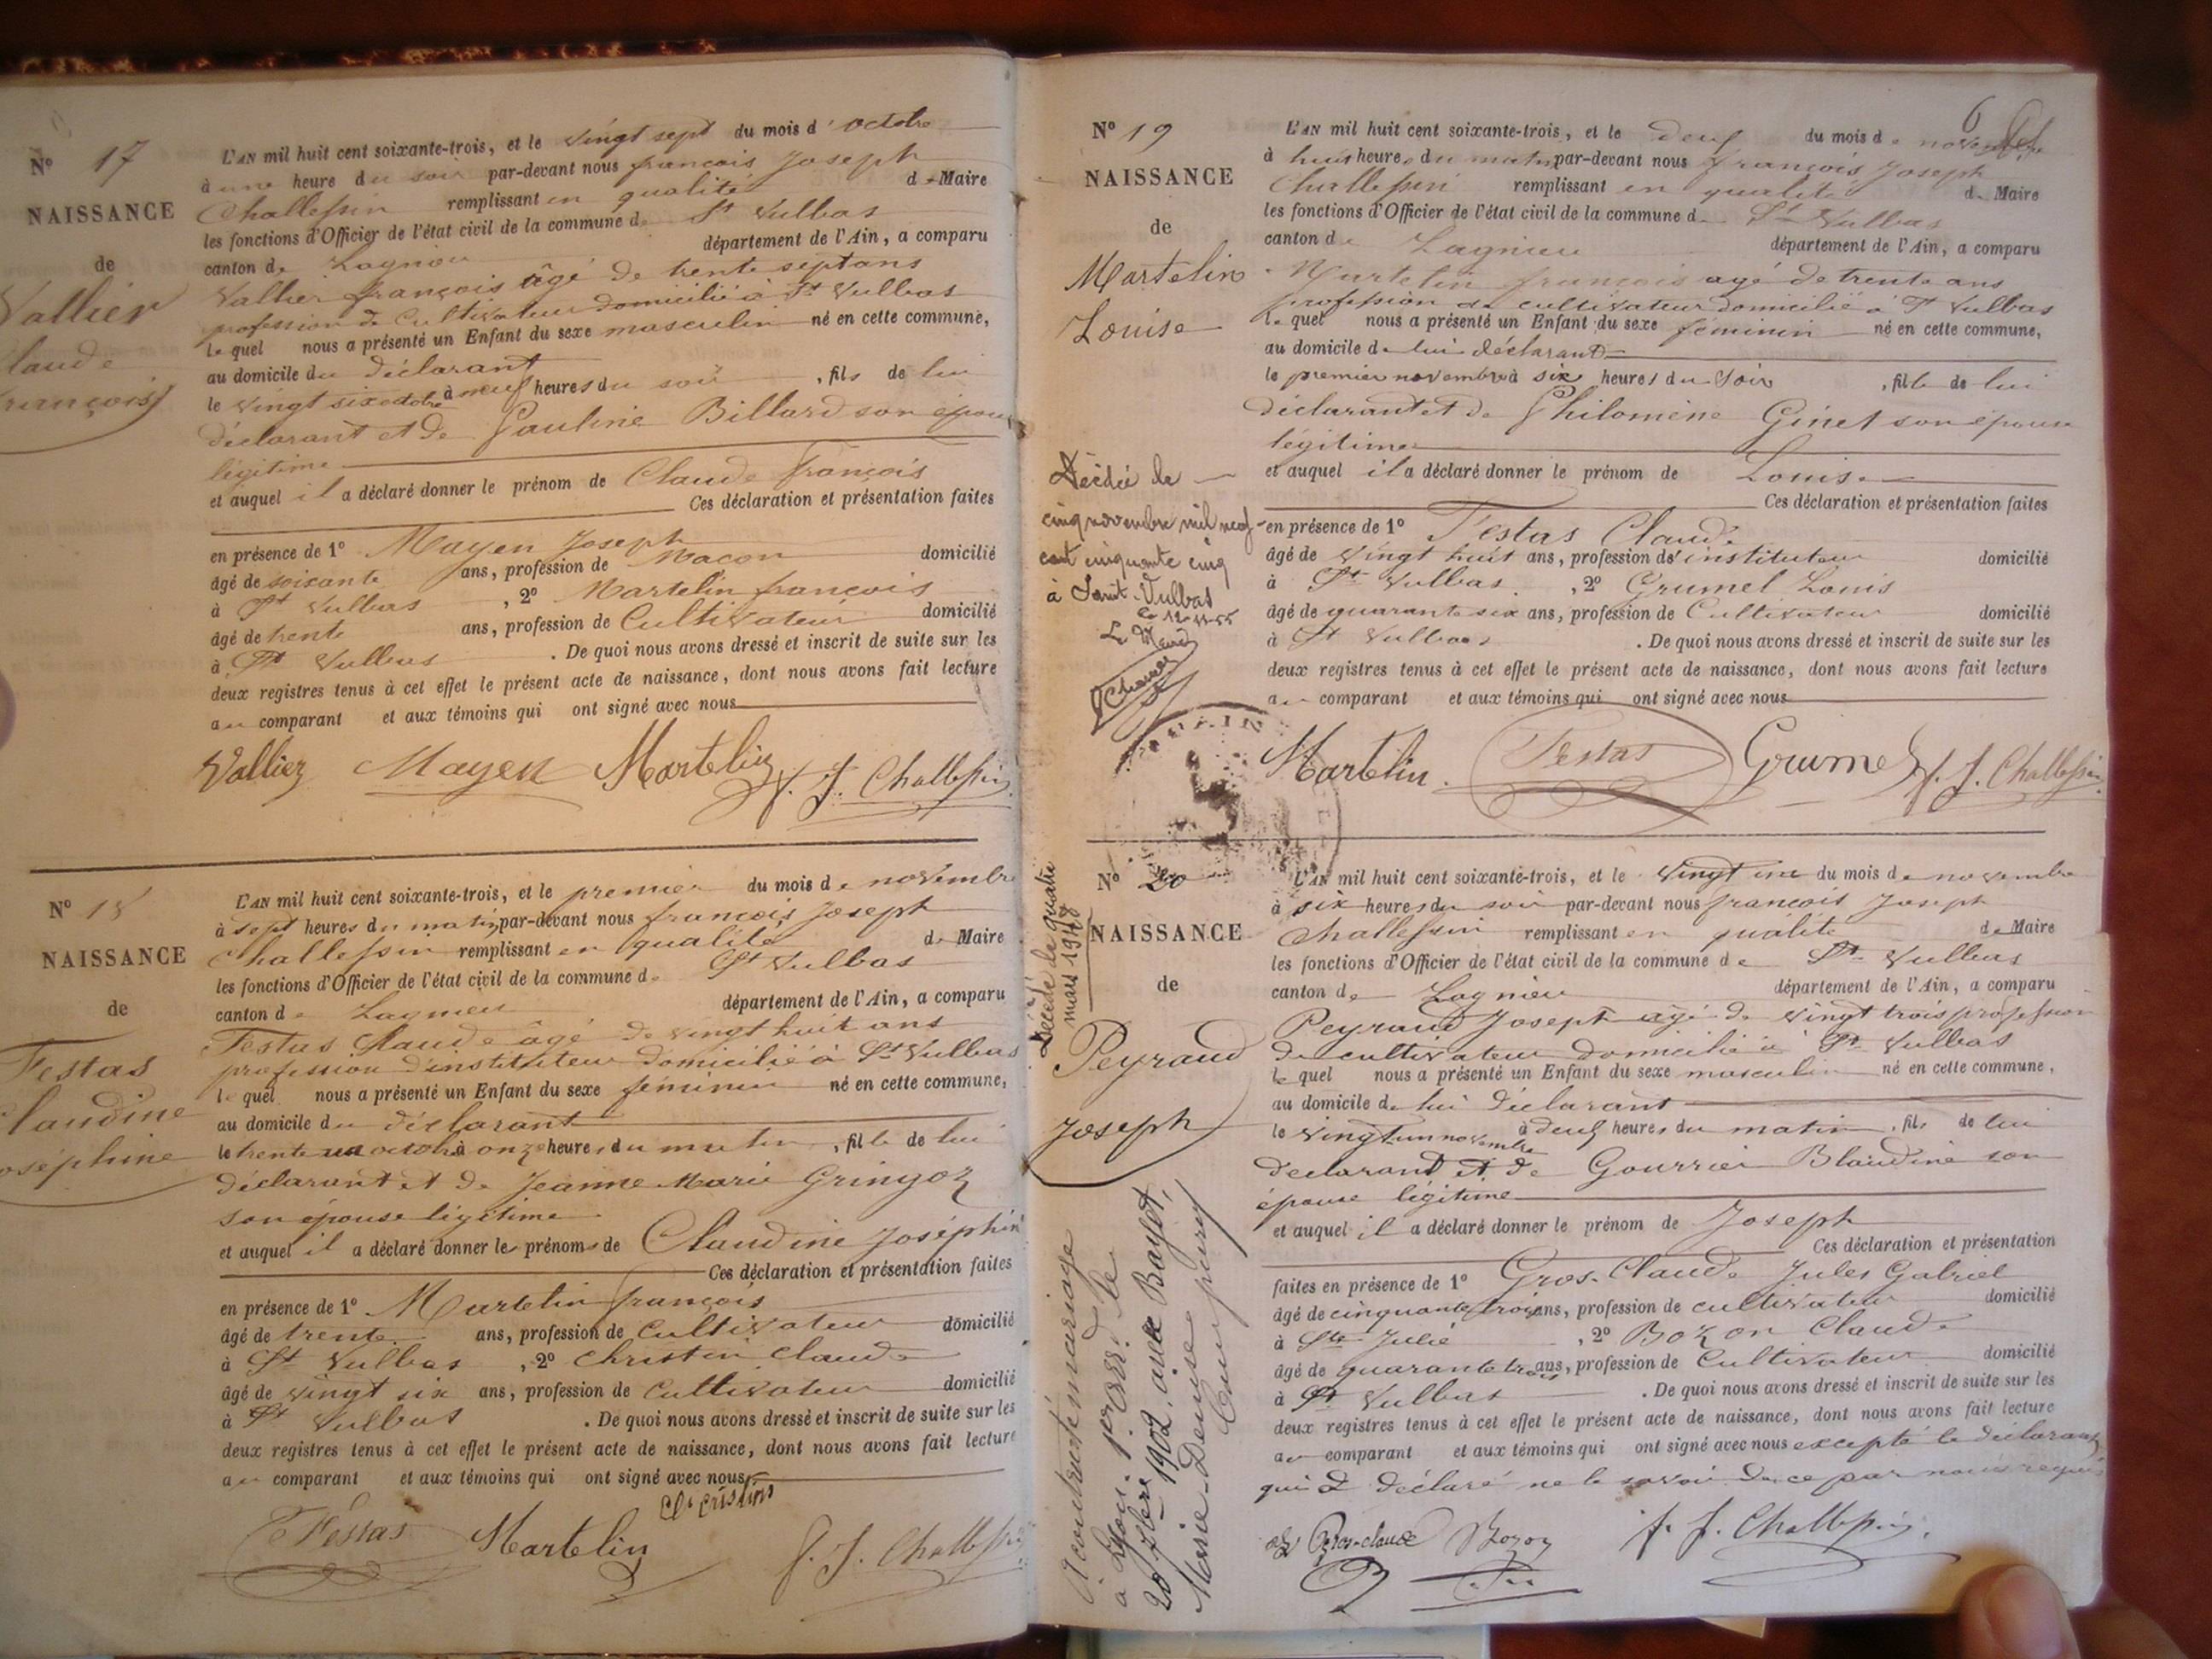 N° 17
NAISSANCE
de
Vallier
Claude
François
L'AN mil huit cent soixante-trois, et le vingt sept du mois d'octobre
à une heure du soir par-devant nous françois Joseph
Challessin remplissant en qualité de Maire
les fonctions d'Officier de l'état civil de la commune de St Vulbas
canton de Lagnieu département de l'Ain, a comparu
Vallier françois âgé de trente sept ans
profession de Cultivateur domicilié à St Vulbas
lequel nous a présenté un Enfant du sexe masculin né en cette commune,
au domicile du déclarant
le vingt six octobre à neuf heures du soir, fils de lui
déclarant et de Pauline Billard son épouse
légitime
et auquel il a déclaré donner le prénom de Claude François
Ces déclaration et présentation faites
en présence de 1° Mayen Joseph
âgé de soixante ans, profession de Macon domicilié
à St Vulbas, 2° Martelin françois
âgé de trente ans, profession de Cultivateur domicilié
à St Vulbas. De quoi nous avons dressé et inscrit de suite sur les
deux registres tenus à cet effet le présent acte de naissance, dont nous avons fait lecture
au comparant et aux témoins qui ont signé avec nous
Vallier Mayen Martelin f. J. Challessin
N° 18
NAISSANCE
de
Festas
Claudine
Joséphine
L'AN mil huit cent soixante-trois, et le premier du mois de novembre
à sept heures du matin par-devant nous françois Joseph
Challessin remplissant en qualité de Maire
les fonctions d'Officier de l'état civil de la commune de St Vulbas
canton de Lagnieu département de l'Ain, a comparu
Festas Claude âgé de vingt huit ans
profession d'instituteur domicilié à St Vulbas
lequel nous a présenté un Enfant du sexe féminin né en cette commune,
au domicile du déclarant
le trente un octobre à onze heures du matin, fille de lui
déclarant et de Jeanne Marie Gringoz
son épouse légitime
et auquel il a déclaré donner les prénoms de Claudine Joséphine
Ces déclaration et présentation faites
en présence de 1° Martelin françois
âgé de trente ans, profession de Cultivateur domicilié
à St Vulbas, 2° Christin Claude
âgé de vingt six ans, profession de Cultivateur domicilié
à St Vulbas. De quoi nous avons dressé et inscrit de suite sur les
deux registres tenus à cet effet le présent acte de naissance, dont nous avons fait lecture
au comparant et aux témoins qui ont signé avec nous
Cde cristin
Festas Martelin f. J. Challessin
6
N° 19
NAISSANCE
de
Martelin
Louise
Décédée le
cinq novembre mil neuf
cent cinquante cinq
à Saint-Vulbas
Le Maire
L'AN mil huit cent soixante-trois, et le deux du mois de novembre
à huit heures du matin par-devant nous françois Joseph
Challessin remplissant en qualité de Maire
les fonctions d'Officier de l'état civil de la commune de St Vulbas
canton de Lagnieu département de l'Ain, a comparu
Martelin françois agé de trente ans
profession de cultivateur domicilié à St Vulbas
lequel nous a présenté un Enfant du sexe féminin né en cette commune,
au domicile de lui déclarant
le premier novembre à six heures du soir, fille de lui
déclarant et de Philomène Ginet son épouse
légitime
et auquel il a déclaré donner le prénom de Louise
Ces déclaration et présentation faites
en présence de 1° Festas Claude
âgé de vingt huit ans, profession d'instituteur domicilié
à St Vulbas, 2° Grumel Louis
âgé de quarante six ans, profession de Cultivateur domicilié
à St Vulbas. De quoi nous avons dressé et inscrit de suite sur les
deux registres tenus à cet effet le présent acte de naissance, dont nous avons fait lecture
au comparant et aux témoins qui ont signé avec nous
Martelin. Festas Grumel f. J. Challessin
N° 20
NAISSANCE
de
Peyraud
Joseph
Décédé le quatre
mars 1948
A contracté mariage
à Lyon le
20 7bre 1902, avec Bayet,
Marie-Denise
L'AN mil huit cent soixante-trois, et le vingt un du mois de novembre
à six heures du soir par-devant nous françois Joseph
Challessin remplissant en qualité de Maire
les fonctions d'Officier de l'état civil de la commune de St Vulbas
canton de Lagnieu département de l'Ain, a comparu
Peyraud Joseph agé de vingt trois profession
de cultivateur domicilié à St Vulbas
lequel nous a présenté un Enfant du sexe masculin né en cette commune,
au domicile de lui déclarant
le vingt un novembre à deux heures du matin, fils de lui
déclarant et de Gourrier Blandine son
épouse légitime
et auquel il a déclaré donner le prénom de Joseph
Ces déclaration et présentation
faites en présence de 1° Gros-Claude Jules Gabriel
âgé de cinquante trois ans, profession de cultivateur domicilié
à Ste Julie, 2° Bozon Claude
âgé de quarante trois ans, profession de Cultivateur domicilié
à St Vulbas. De quoi nous avons dressé et inscrit de suite sur les
deux registres tenus à cet effet le présent acte de naissance, dont nous avons fait lecture
au comparant et aux témoins qui ont signé avec nous excepté le déclarant
qui a déclaré ne le savoir de ce par nous requis
Gros-claude Bozon f. J. Challessin